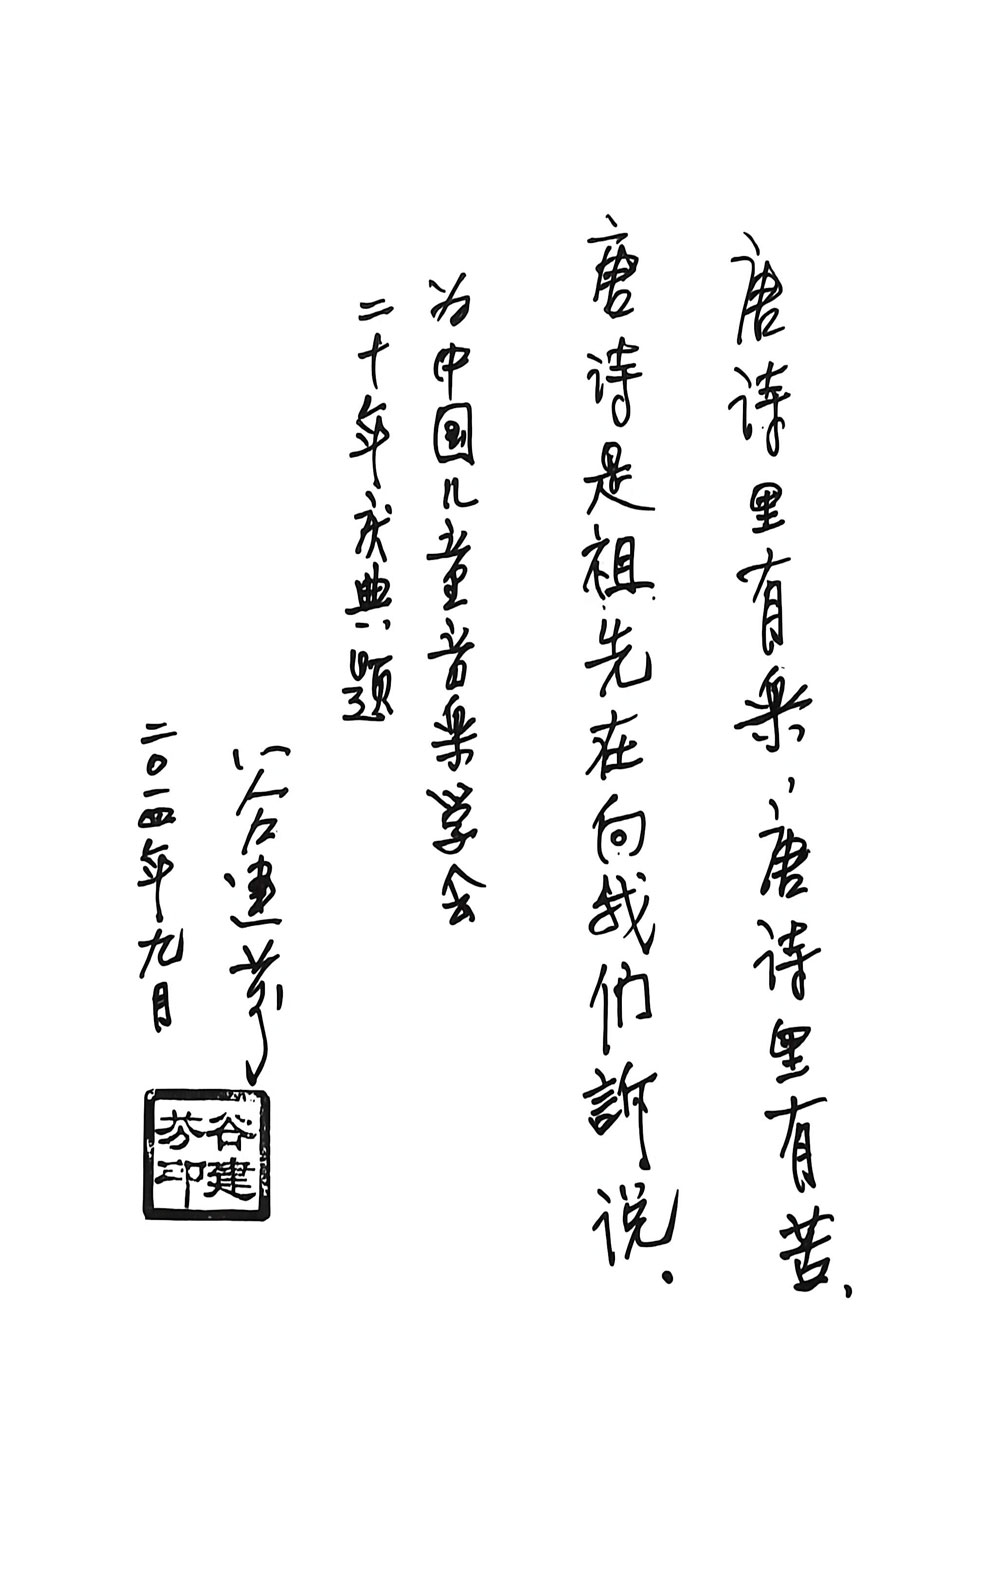 唐诗里有乐，唐诗里有苦，
唐诗是祖先在向我们訴说.
为中国儿童音乐学会
二十年庆典题
谷建芬
二〇一四年九月
谷建芬印